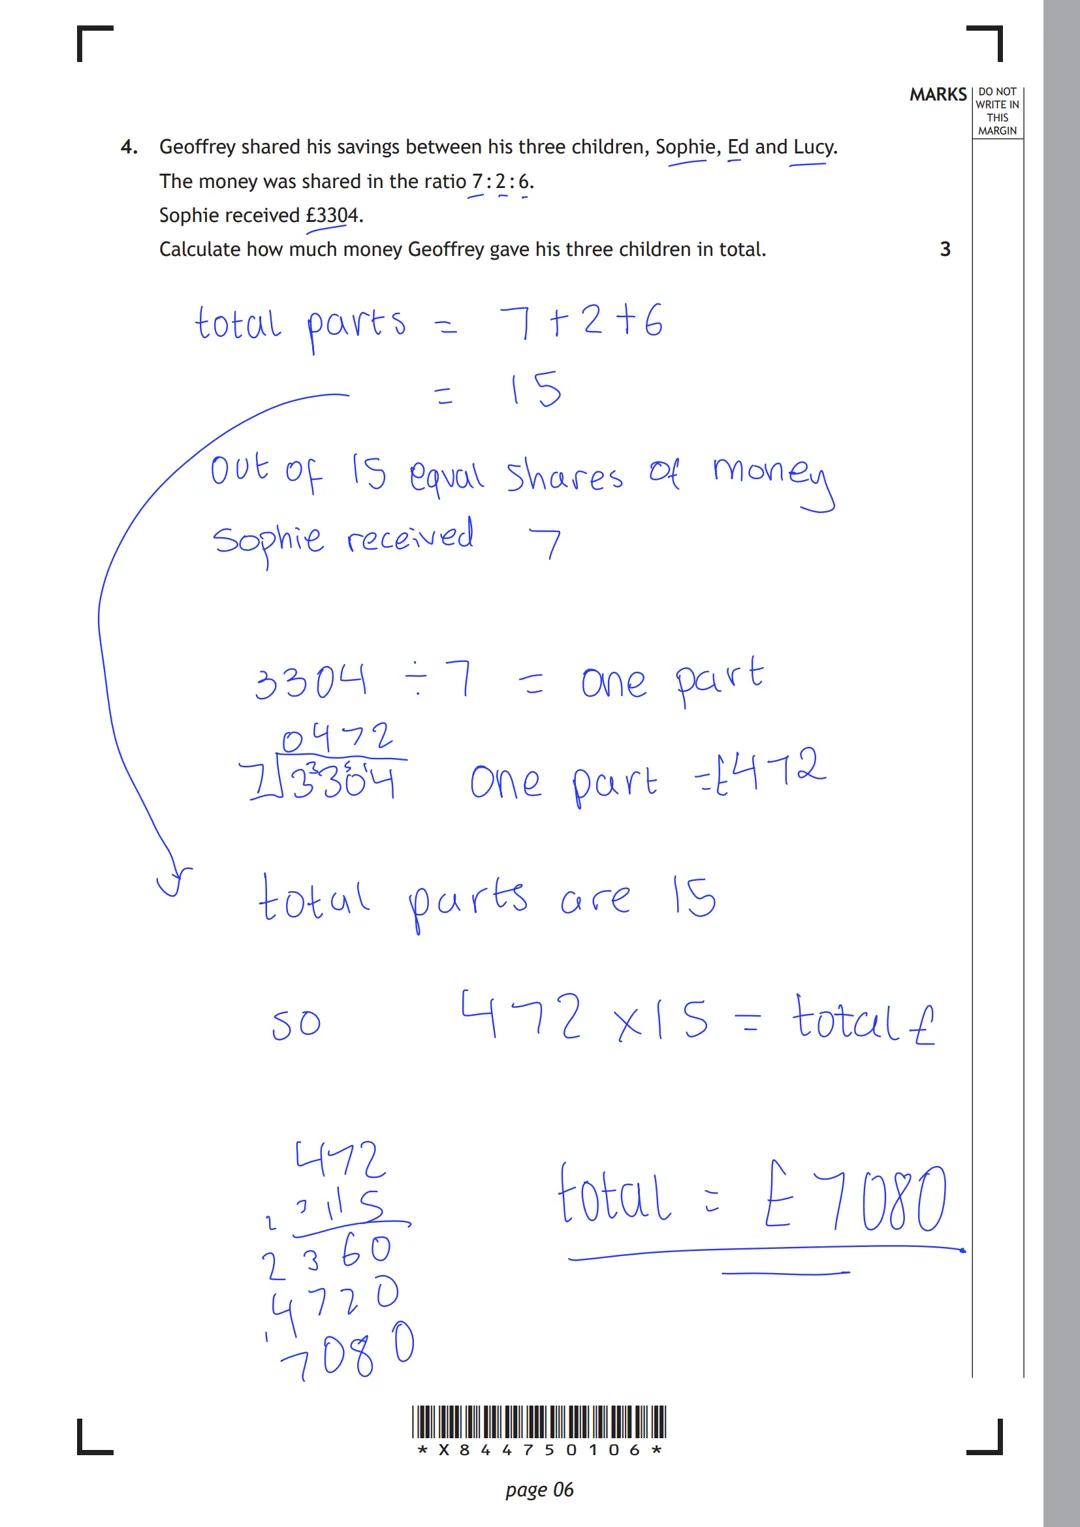 MARKS
DO NOT
WRITE IN
THIS
MARGIN
4. Geoffrey shared his savings between his three children, Sophie, Ed and Lucy.
The money was shared in the ratio 7 : 2 : 6.
Sophie received £3304.
Calculate how much money Geoffrey gave his three children in total. 3
total parts = 7 + 2 + 6
= 15
out of 15 equal shares of money
Sophie received 7
3304 ÷ 7 = one part
0472
7 3304 one part = £472
total parts are 15
so 472 x 15 = total £
472
15
2360
4720
7080
total = £7080
* X 8 4 4 7 5 0 1 0 6 *
page 06